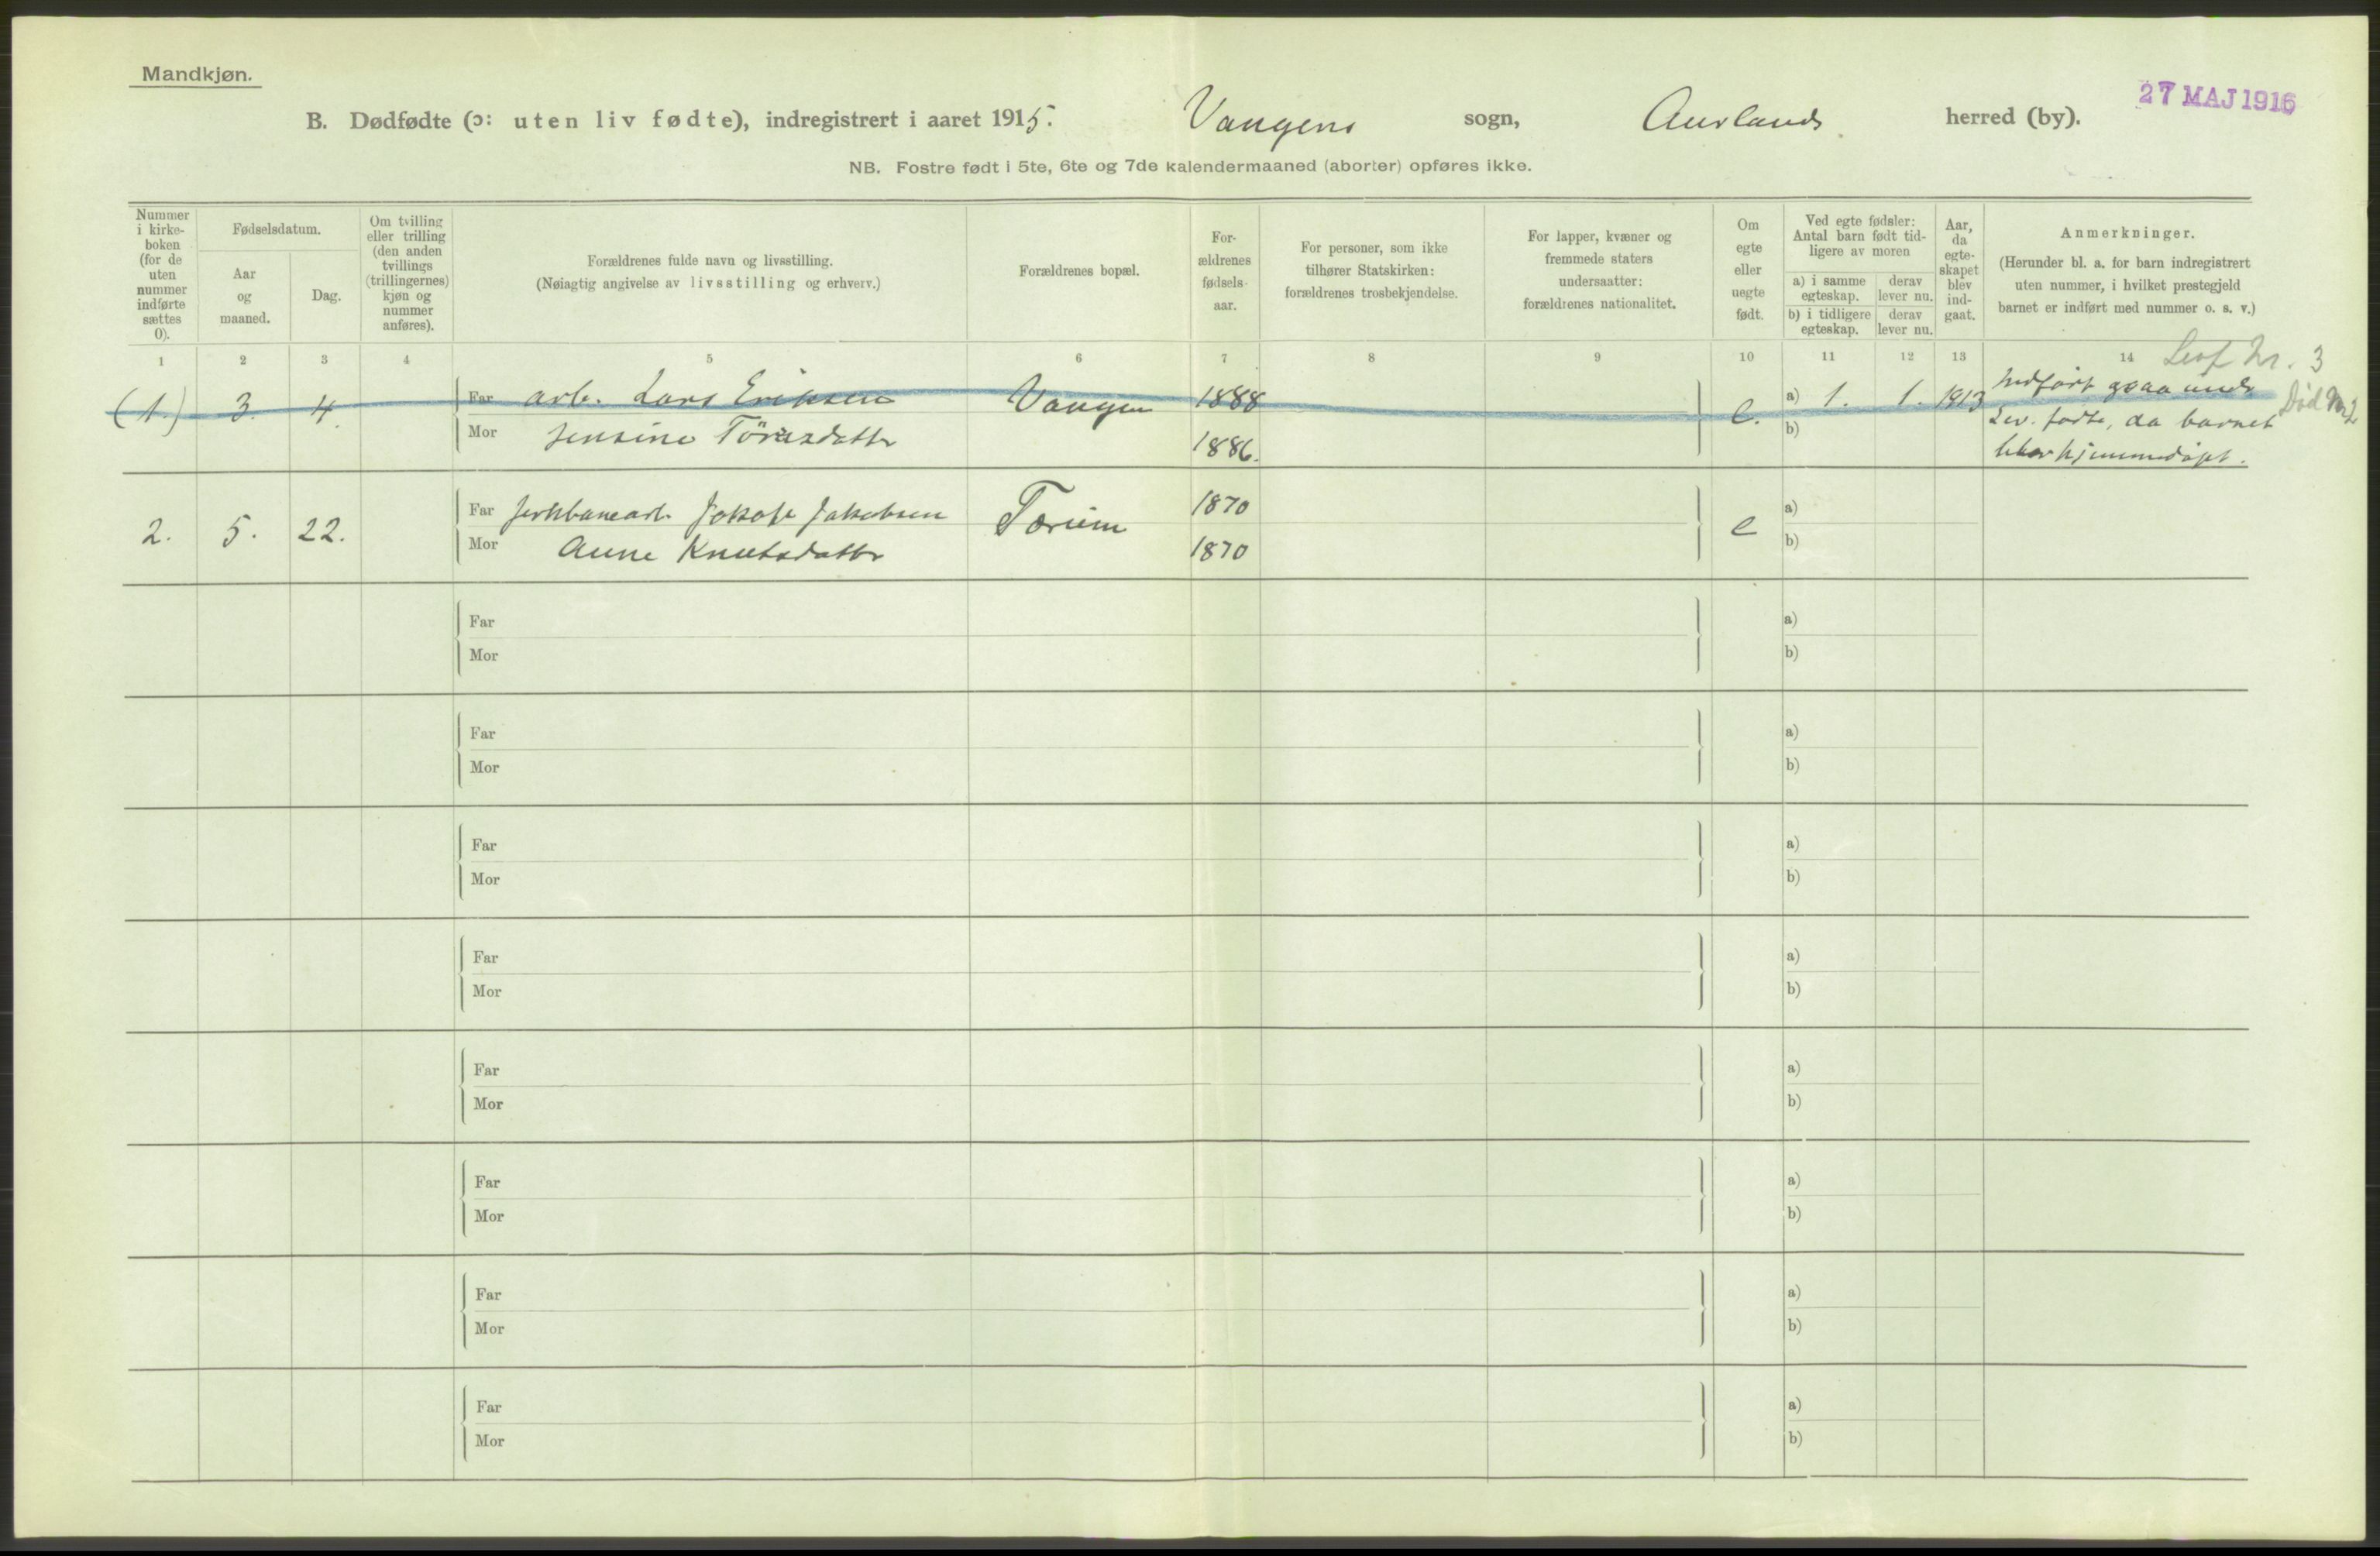 Mandkjøn.
27 MAJ 1916
B. Dødfødte (ɔ: uten liv fødte), indregistrert i aaret 1915. Vangens sogn, Aurlands herred (by).
NB. Fostre født i 5te, 6te og 7de kalendermaaned (aborter) opføres ikke.
Nummer i kirke- boken (for de uten nummer indførte sættes 0).
Fødselsdatum.
Aar og maaned.
Dag.
Om tvilling eller trilling (den anden tvillings (trillingernes) kjøn og nummer anføres).
Forældrenes fulde navn og livsstilling.
(Nøiagtig angivelse av livsstilling og erhverv.)
Forældrenes bopæl.
For- ældrenes fødsels- aar.
For personer, som ikke tilhører Statskirken: forældrenes trosbekjendelse.
For lapper, kvæner og fremmede staters undersaatter: forældrenes nationalitet.
Om egte eller uegte født.
Ved egte fødsler: Antal barn født tid- ligere av moren
a) i samme egteskap. derav lever nu.
b) i tidligere egteskap. derav lever nu.
Aar, da egte- skapet blev ind- gaat.
Anmerkninger.
(Herunder bl. a. for barn indregistrert uten nummer, i hvilket prestegjeld barnet er indført med nummer o. s. v.)
1 2 3 4 5 6 7 8 9 10 11 12 13 14
Nr. 3
(1.) 3. 4. Far arb. Lars Eriksen Vangen 1888 e. a) 1. 1. 1913
Indført ogsaa under
Død Nr 2
Mor Jensine 1886. b)
Lev. fødte, da barnet
blev hjemmedøpt.
2. 5. 22. Far Jernbanearb. Jakob Jakobsen 1870 e a)
Mor Anne Knutsdatter 1870 b)
Far a)
Mor b)
Far a)
Mor b)
Far a)
Mor b)
Far a)
Mor b)
Far a)
Mor b)
Far a)
Mor b)
Far a)
Mor b)
Far a)
Mor b)